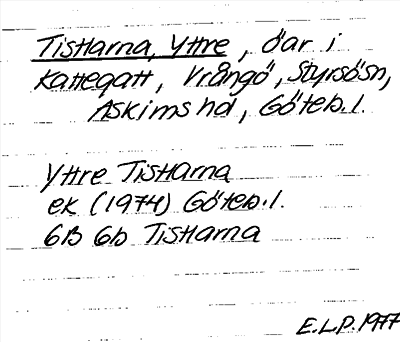 Tistlarna, Yttre, öar i
Kattegatt, Vrångö, Styrsösn,
Askims hd, Göteb. l.
Yttre Tistlarna
ek (1974) Göteb. l.
6B 6b Tistlarna
E.L.P. 1977